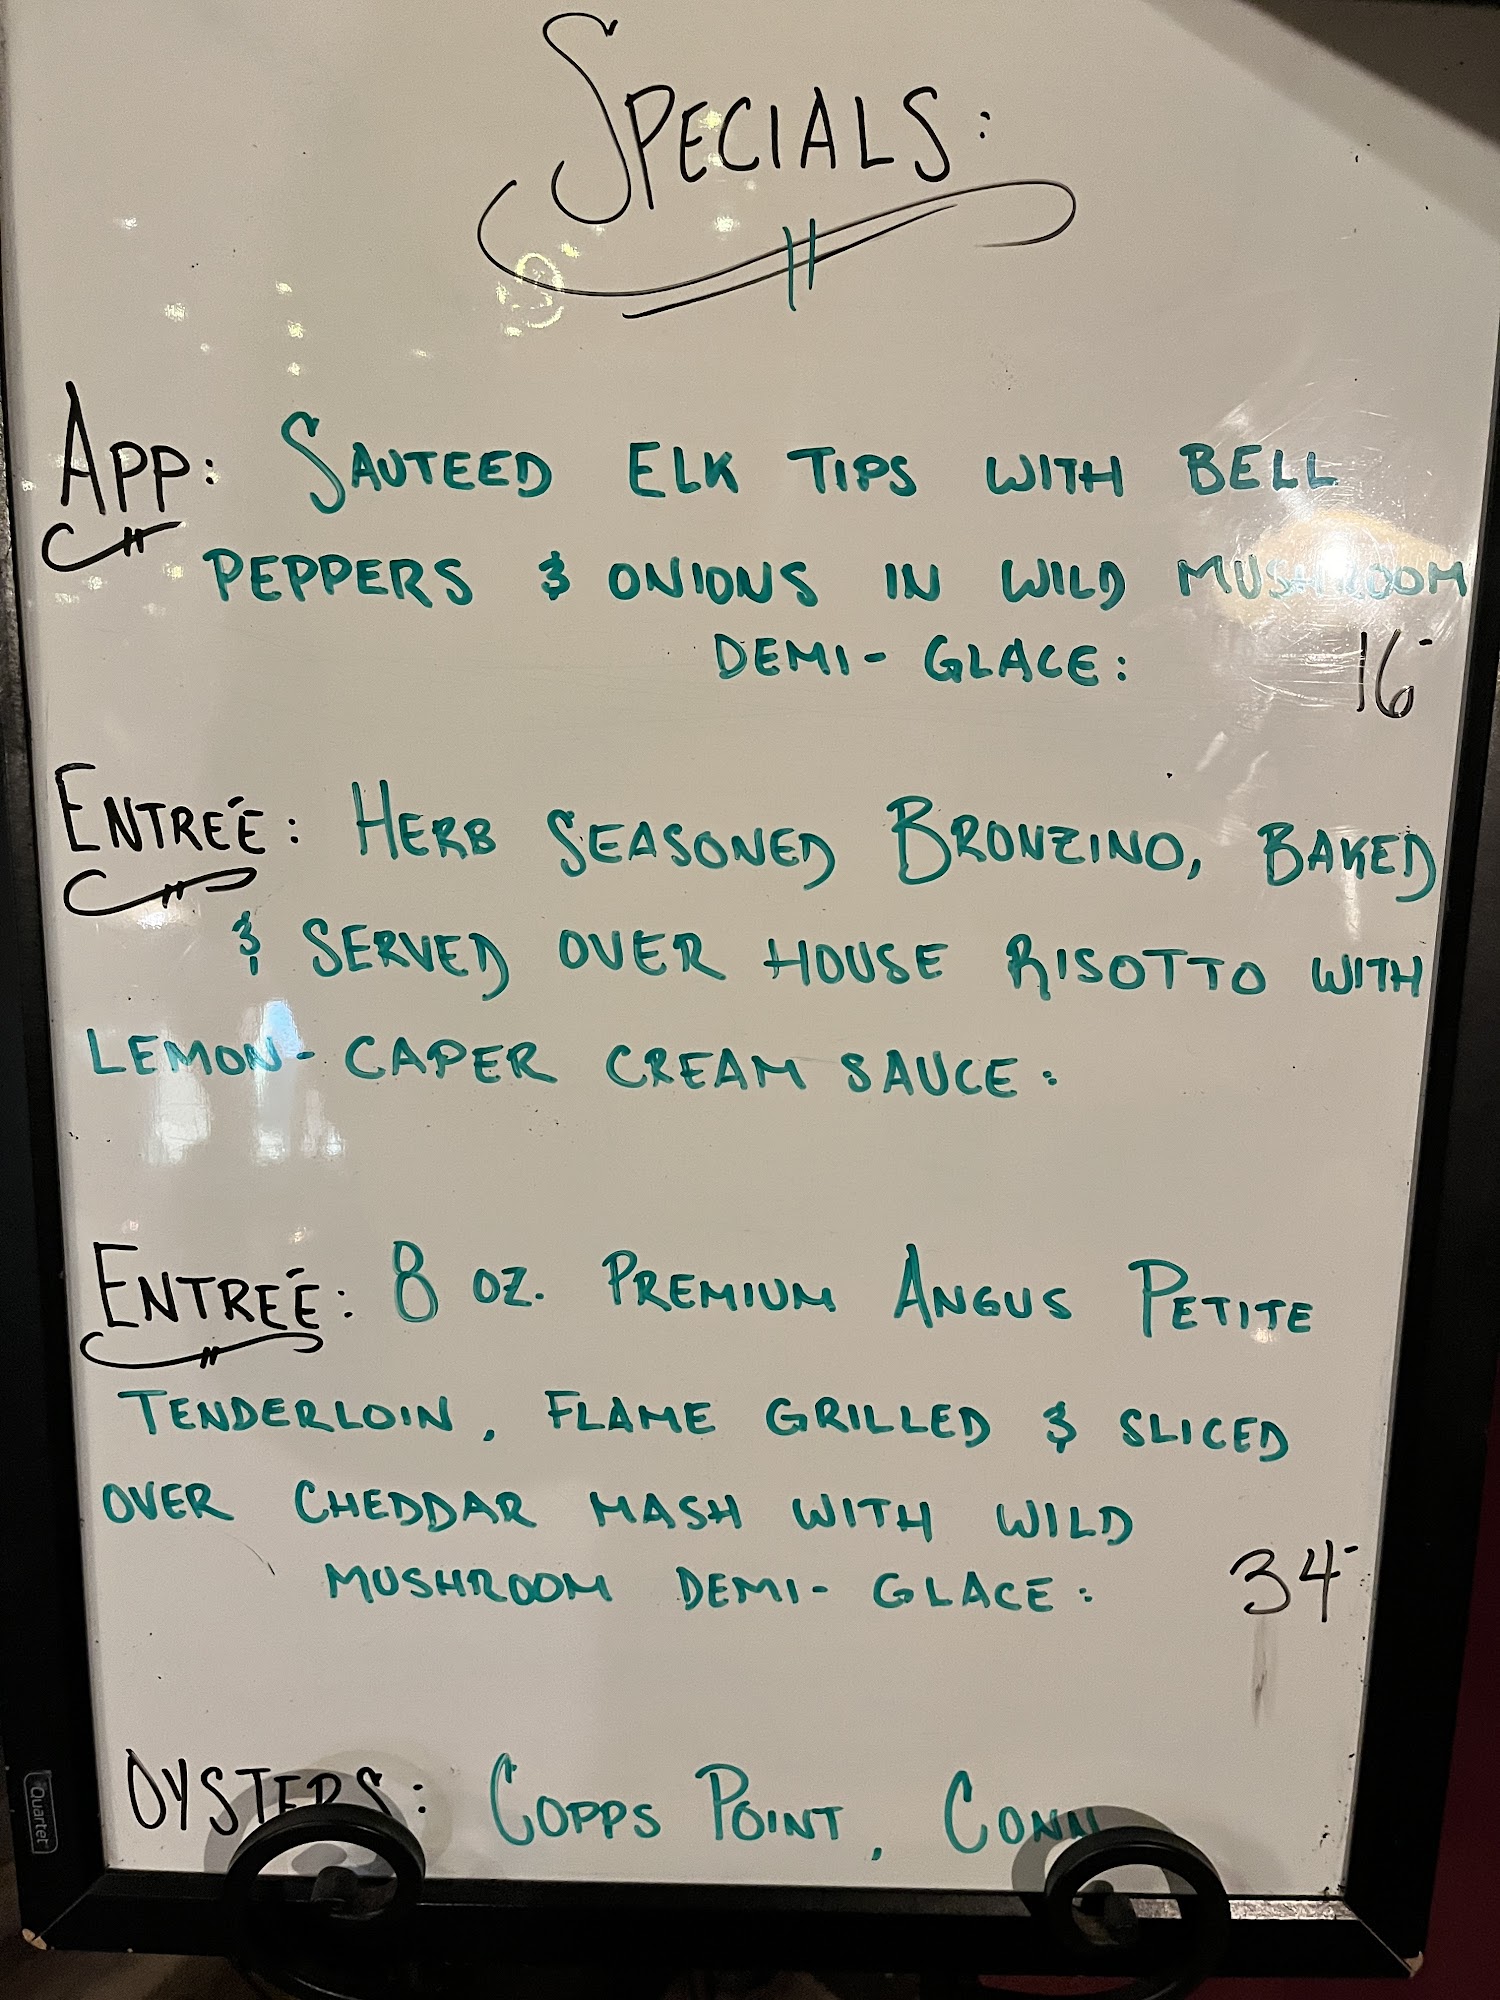 SPECIALS:
APP: SAUTEED ELK TIPS WITH BELL
PEPPERS & ONIONS IN WILD MUSHROOM
DEMI-GLACE: 16-
ENTREÉ: HERB SEASONED BRONZINO, BAKED
& SERVED OVER HOUSE RISOTTO WITH
LEMON-CAPER CREAM SAUCE:
ENTREÉ: 8 OZ. PREMIUM ANGUS PETITE
TENDERLOIN, FLAME GRILLED & SLICED
OVER CHEDDAR MASH WITH WILD
MUSHROOM DEMI-GLACE: 34-
OYSTERS: COPPS POINT, CONN
Quartet